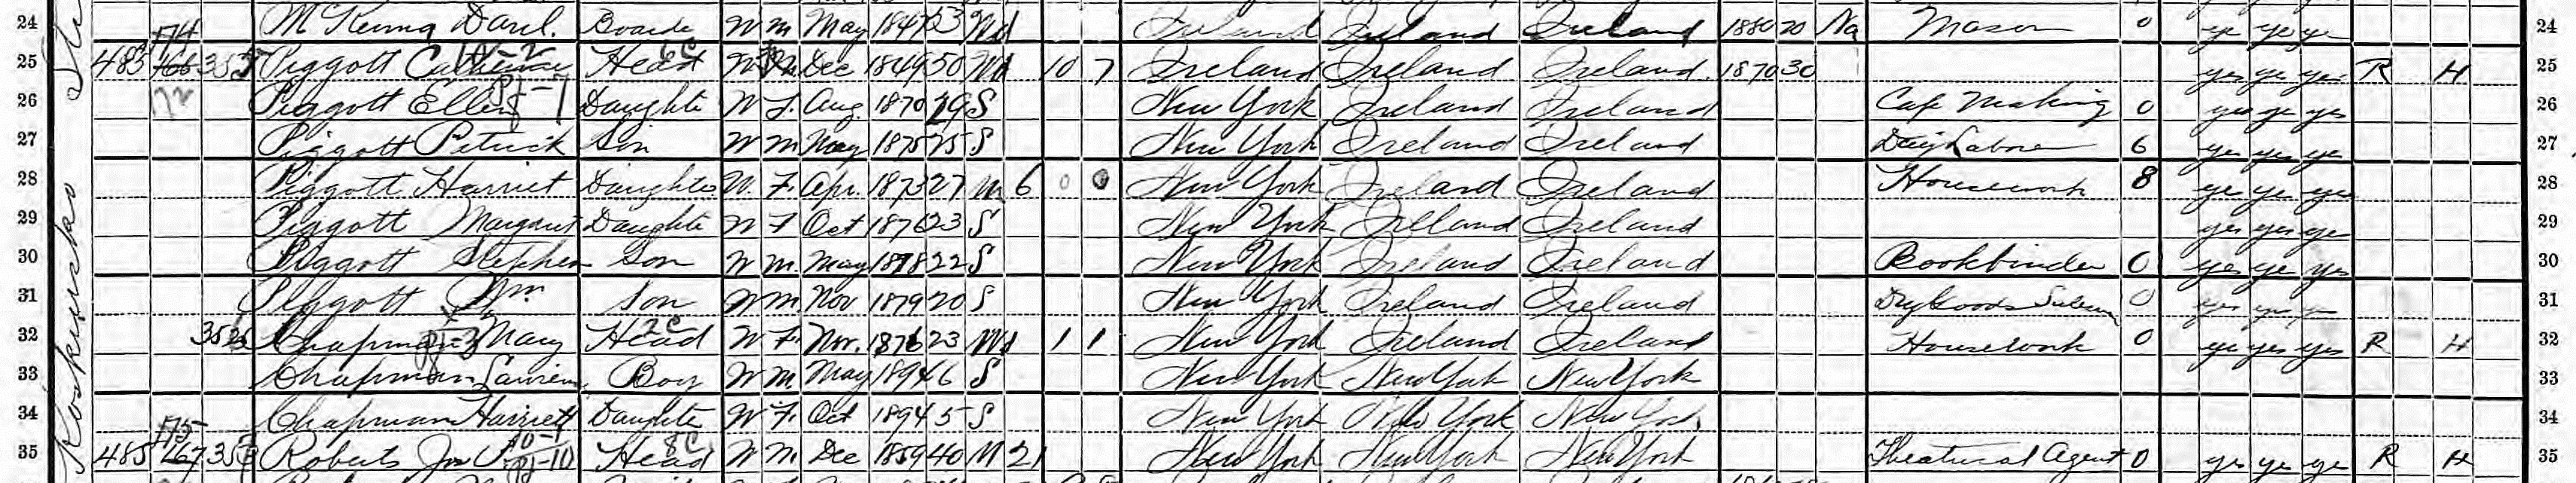 24 McKenna Danl. Boarder W M May 1847 53 Wd Ireland Ireland Ireland 1880 20 Na Mason 0 yes yes yes 24
174
25 485 166 355 Piggott Catherine Head W Dec 1849 50 Wd 10 7 Ireland Ireland Ireland 1870 30 yes yes yes R H 25
26 Piggott Ellen Daughte W F. Aug. 1870 29 S New York Ireland Ireland Cap Making 0 yes yes yes 26
27 Piggott Patrick Son W M May 1875 25 S New York Ireland Ireland Day Labore 6 yes yes yes 27
28 Piggott Harriet Daughter W. F. Apr. 1873 27 M 6 0 0 New York Ireland Ireland Housework 8 yes yes yes 28
29 Piggott Margaret Daughte W F Oct 1876 23 S New York Ireland Ireland yes yes yes 29
30 Piggott Stephen Son W M. May 1878 22 S New York Ireland Ireland Bookbinder 0 yes ye yes 30
31 Piggott Wm Son W M Nov 1879 20 S New York Ireland Ireland Dry Goods Salesm 0 yes yes ye 31
32 Chapman Mary Head W F. Nov. 1876 23 Wd 1 1 New York Ireland Ireland Housework 0 ye yes yes R H 32
33 Chapman Lawrence Boy W M. May 1894 6 S New York New York New York 33
34 Chapman Harriett Daughte W F. Oct 1894 5 S New York New York New York 34
175
35 485 167 Roberts Jos Head W M. Dec 1859 40 M 21 New York New York New York Theatrical Agent 0 yes ye ye R H 35